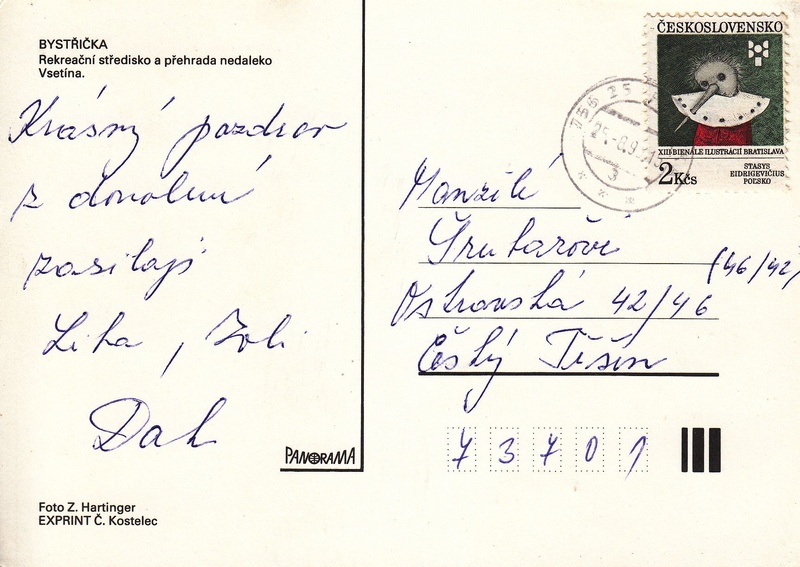 BYSTŘIČKA
Rekreační středisko a přehrada nedaleko
Vsetína.
Krásný pozdrav
z dovolené
zasílají
Liba, Zoli
Dal
PANORAMA
Foto Z. Hartinger
EXPRINT Č. Kostelec
ČESKOSLOVENSKO
XIII. BIENÁLE ILUSTRÁCIÍ BRATISLAVA
2 Kčs
STASYS
EIDRIGEVIČIUS
POĽSKO
Manželé
(46/42)
Ostravská 42/46
Český Těšín
73701